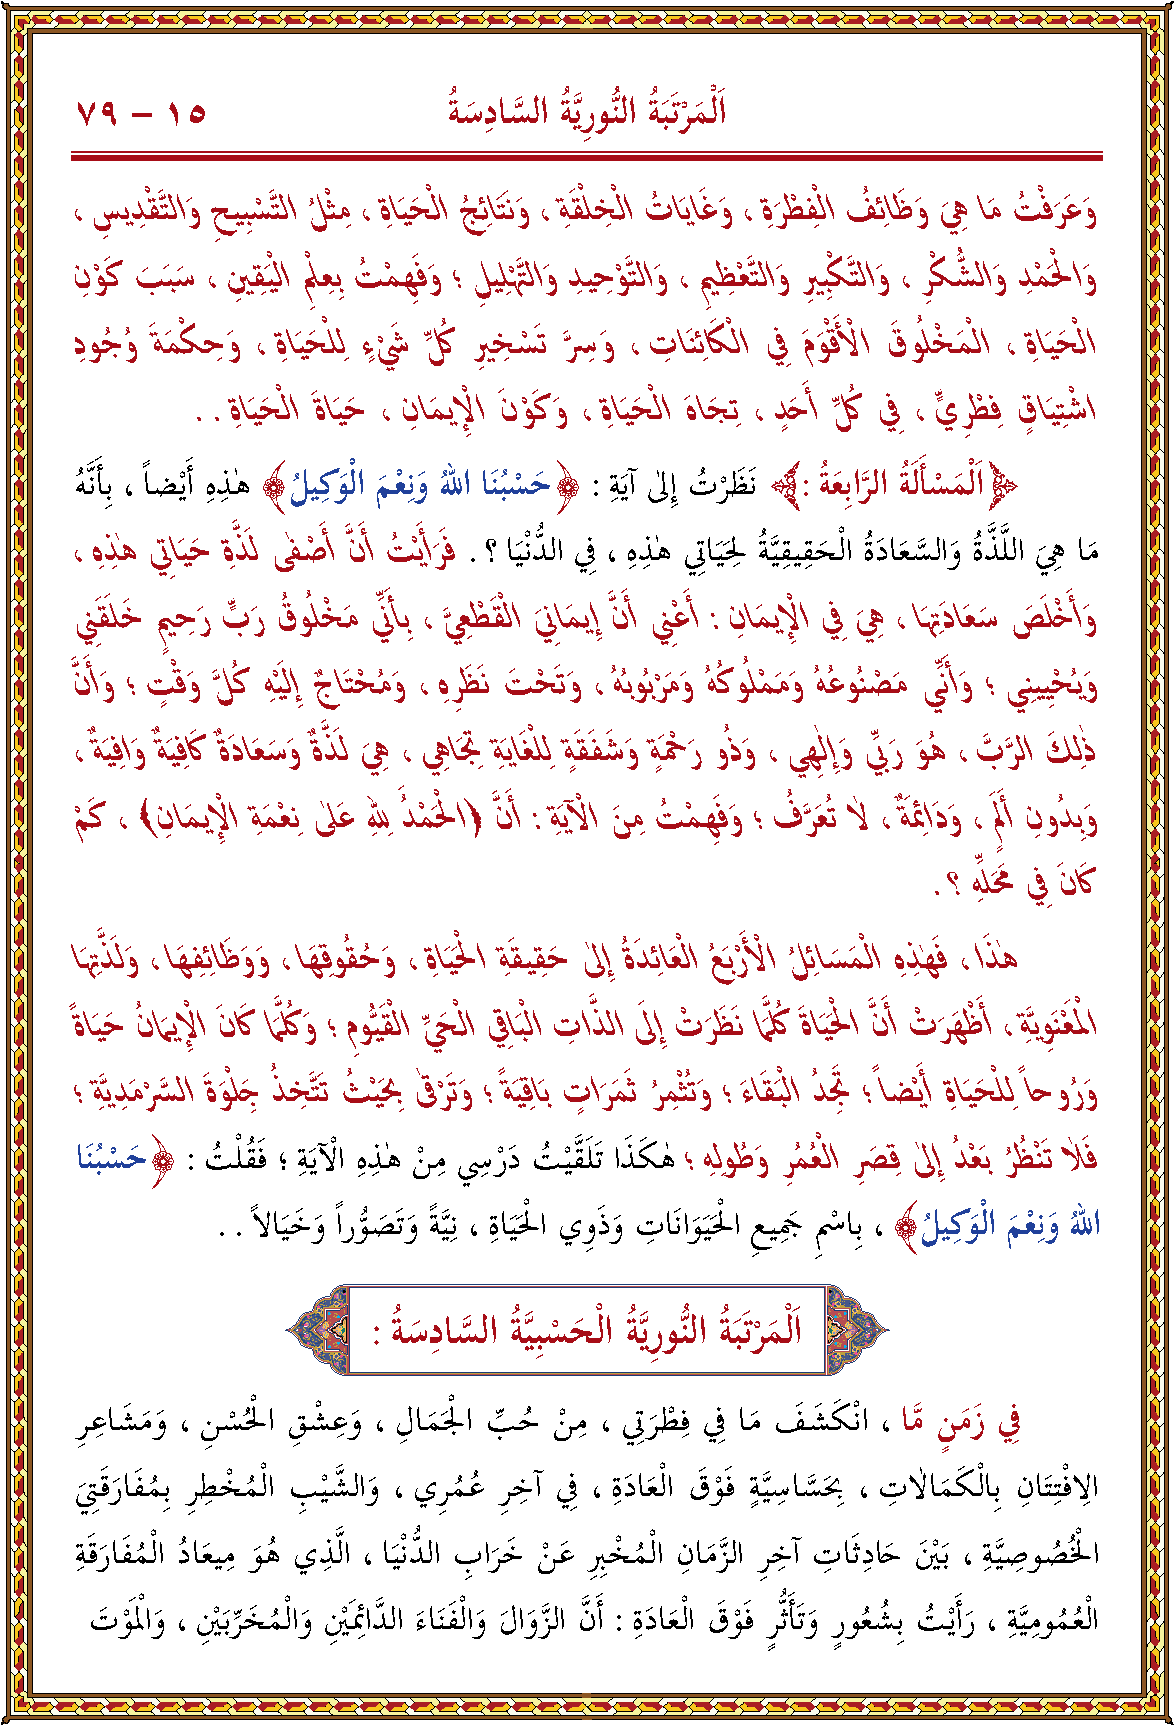 اَلْمَرْتَبَةُ النُّورِيَّةُ السَّادِسَةُ
١٥ – ٧٩
وَعَرَفْتُ مَا هِيَ وَظَائِفُ الْفِطْرَةِ ، وَغَايَاتُ الْخِلْقَةِ ، وَنَتَائِجُ الْحَيَاةِ ، مِثْلُ التَّسْبِيحِ وَالتَّقْدِيسِ ،
وَالْحَمْدِ وَالشُّكْرِ ، وَالتَّكْبِيرِ وَالتَّعْظِيمِ ، وَالتَّوْحِيدِ وَالتَّهْلِيلِ ؛ وَفَهِمْتُ بِعِلْمِ الْيَقِينِ ، سَبَبَ كَوْنِ
الْحَيَاةِ ، الْمَخْلُوقَ الْأَقْوَمَ فِي الْكَائِنَاتِ ، وَسِرَّ تَسْخِيرِ كُلِّ شَيْءٍ لِلْحَيَاةِ ، وَحِكْمَةَ وُجُودِ
اشْتِيَاقٍ فِطْرِيٍّ ، فِي كُلِّ أَحَدٍ ، تِجَاهَ الْحَيَاةِ ، وَكَوْنَ الْإِيمَانِ ، حَيَاةَ الْحَيَاةِ . .
﴿اَلْمَسْأَلَةُ الرَّابِعَةُ :﴾ نَظَرْتُ إِلٰى آيَةِ : ﴿حَسْبُنَا اللهُ وَنِعْمَ الْوَكِيلُ﴾ هٰذِهِ أَيْضاً ، بِأَنَّهُ
مَا هِيَ اللَّذَّةُ وَالسَّعَادَةُ الْحَقِيقِيَّةُ لِحَيَاتِي هٰذِهِ ، فِي الدُّنْيَا ؟ . فَرَأَيْتُ أَنَّ أَصْفٰى لَذَّةِ حَيَاتِي هٰذِهِ ،
وَأَخْلَصَ سَعَادَتِهَا ، هِيَ فِي الْإِيمَانِ : أَعْنِي أَنَّ إِيمَانِيَ الْقَطْعِيَّ ، بِأَنِّي مَخْلُوقُ رَبٍّ رَحِيمٍ خَلَقَنِي
وَيُحْيِينِي ؛ وَأَنِّي مَصْنُوعُهُ وَمَمْلُوكُهُ وَمَرْبُوبُهُ ، وَتَحْتَ نَظَرِهِ ، وَمُحْتَاجٌ إِلَيْهِ كُلَّ وَقْتٍ ؛ وَأَنَّ
ذٰلِكَ الرَّبَّ ، هُوَ رَبِّي وَإِلٰهِي ، وَذُو رَحْمَةٍ وَشَفَقَةٍ لِلْغَايَةِ تِجَاهِي ، هِيَ لَذَّةٌ وَسَعَادَةٌ كَافِيَةٌ وَافِيَةٌ ،
وَبِدُونِ أَلَمٍ ، وَدَائِمَةٌ ، لَا تُعَرَّفُ ؛ وَفَهِمْتُ مِنَ الْآيَةِ : أَنَّ ﴿الْحَمْدُ لِلّٰهِ عَلٰى نِعْمَةِ الْإِيمَانِ﴾ ، كَمْ
كَانَ فِي مَحَلِّهِ ؟ .
هٰذَا ، فَهٰذِهِ الْمَسَائِلُ الْأَرْبَعُ الْعَائِدَةُ إِلٰى حَقِيقَةِ الْحَيَاةِ ، وَحُقُوقِهَا ، وَوَظَائِفِهَا ، وَلَذَّتِهَا
الْمَعْنَوِيَّةِ ، أَظْهَرَتْ أَنَّ الْحَيَاةَ كُلَّمَا نَظَرَتْ إِلَى الذَّاتِ الْبَاقِي الْحَيِّ الْقَيُّومِ ؛ وَكُلَّمَا كَانَ الْإِيمَانُ حَيَاةً
وَرُوحاً لِلْحَيَاةِ أَيْضاً ؛ تَجِدُ الْبَقَاءَ ؛ وَتُثْمِرُ ثَمَرَاتٍ بَاقِيَةً ؛ وَتَرْقٰى بِحَيْثُ تَتَّخِذُ جِلْوَةَ السَّرْمَدِيَّةِ ؛
فَلَا تَنْظُرُ بَعْدُ إِلٰى قِصَرِ الْعُمُرِ وَطُولِهِ ؛ هٰكَذَا تَلَقَّيْتُ دَرْسِي مِنْ هٰذِهِ الْآيَةِ ؛ فَقُلْتُ : ﴿حَسْبُنَا
اللهُ وَنِعْمَ الْوَكِيلُ﴾ ، بِاسْمِ جَمِيعِ الْحَيَوَانَاتِ وَذَوِي الْحَيَاةِ ، نِيَّةً وَتَصَوُّراً وَخَيَالاً . .
اَلْمَرْتَبَةُ النُّورِيَّةُ الْحَسْبِيَّةُ السَّادِسَةُ :
فِي زَمَنٍ مَّا ، انْكَشَفَ مَا فِي فِطْرَتِي ، مِنْ حُبِّ الْجَمَالِ ، وَعِشْقِ الْحُسْنِ ، وَمَشَاعِرِ
الِافْتِتَانِ بِالْكَمَالَاتِ ، بِحَسَّاسِيَّةٍ فَوْقَ الْعَادَةِ ، فِي آخِرِ عُمُرِي ، وَالشَّيْبِ الْمُخْطِرِ بِمُفَارَقَتِيَ
الْخُصُوصِيَّةِ ، بَيْنَ حَادِثَاتِ آخِرِ الزَّمَانِ الْمُخْبِرِ عَنْ خَرَابِ الدُّنْيَا ، الَّذِي هُوَ مِيعَادُ الْمُفَارَقَةِ
الْعُمُومِيَّةِ ، رَأَيْتُ بِشُعُورٍ وَتَأَثُّرٍ فَوْقَ الْعَادَةِ : أَنَّ الزَّوَالَ وَالْفَنَاءَ الدَّائِمَيْنِ وَالْمُخَرِّبَيْنِ ، وَالْمَوْتَ